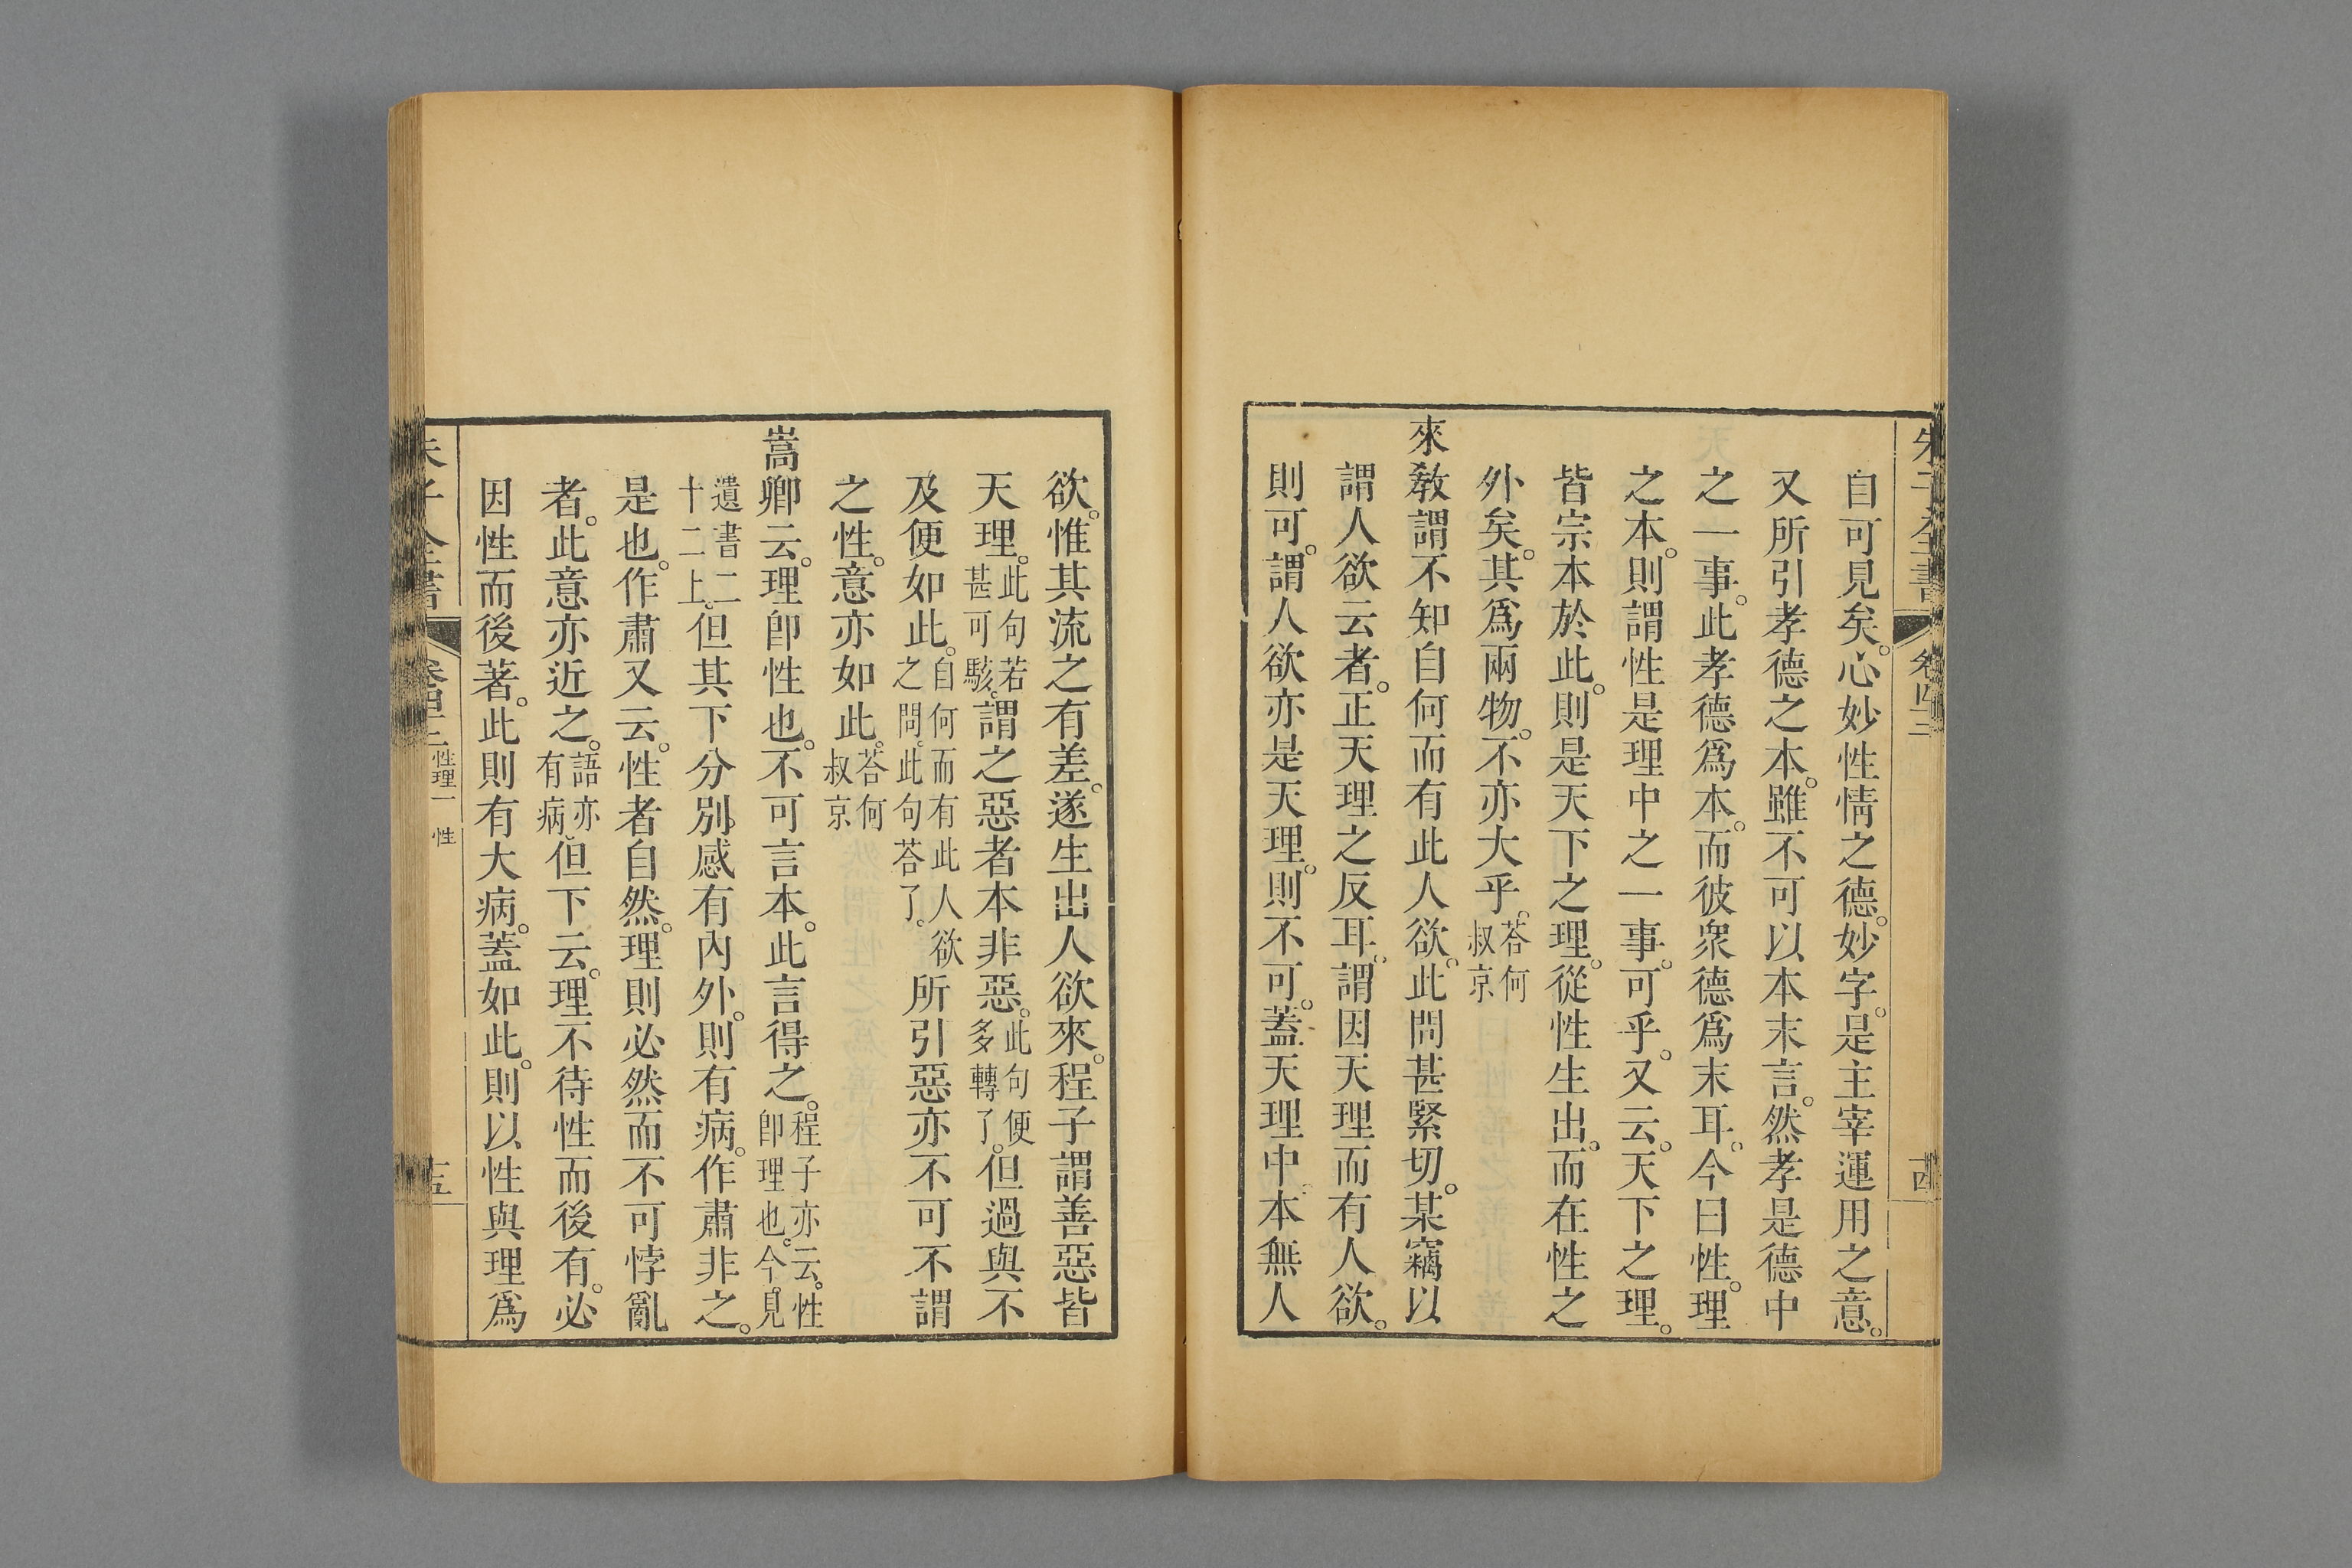 朱子全書 卷四十二
自可見矣。心妙性情之德。妙字。是主宰運用之意。
又所引孝德之本。雖不可以本末言。然孝是德中
之一事。此孝德爲本。而彼衆德爲末耳。今曰性。理
之本。則謂性是理中之一事。可乎。又云。天下之理。
皆宗本於此。則是天下之理。從性生出。而在性之
外矣。其爲兩物。不亦大乎。荅何叔京
來敎謂不知自何而有此人欲。此問甚緊切。某竊以
謂人欲云者。正天理之反耳。謂因天理而有人欲。
則可。謂人欲亦是天理。則不可。蓋天理中。本無人
欲。惟其流之有差。遂生出人欲來。程子謂善惡皆
天理。此句若甚可駭。謂之惡者本非惡。此句便多轉了。但過與不
及便如此。自何而有此人欲之問。此句荅了。所引惡亦不可不謂
之性。意亦如此。荅何叔京
嵩卿云。理卽性也。不可言本。此言得之。程子亦云。性卽理也。今見
遺書二十二上。但其下分別。感有內外。則有病。作肅非之。
是也。作肅又云。性者自然。理則必然而不可悖亂
者。此意亦近之。語亦有病。但下云。理不待性而後有。必
因性而後著。此則有大病。蓋如此。則以性與理爲
性理一 性